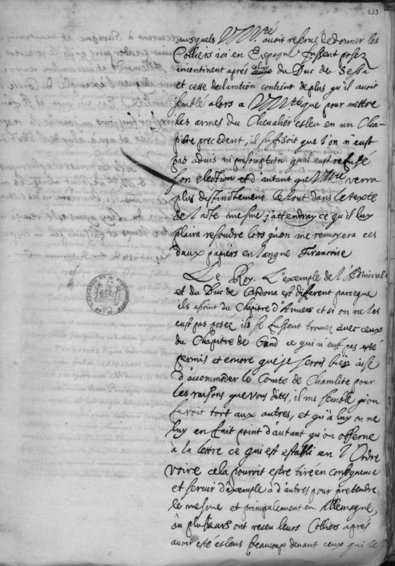 253
ausquels V. M.té avoit reservé de donner les
Colliers ici en Espagne fussent posez
incontinent apres celuy du Duc de Sessa
et cette declaration contient de plus qu'il avoit
semblé alors a V. M.te que pour mettre
les armes du Chevalier esleu en un Cha-
pitre precedent, il suffisoit que l'on n'eust
pas advis ni presumption qu'il eust refusé
son election et d'autant que V. M.té verra
plus distinctement le tout dans le texte
de l'acte mesme j'attendray ce qu'il luy
plaira resoudre lors qu'on me renvoyera ces
deux papiers en langue Françoise
Le Roy. L'exemple de l'Admiral
et du Duc de Cardona est different parce que
ils estoient du Chapitre d'Anvers et si on ne les
eust pas posez ils se fussent trouvez avec ceux
du Chapitre de Gand ce qui n'eust pas esté
permis et encore que je serois bien aise
d'accommoder le Comte de Chamlite pour
les raisons que vous dites, il me semble qu'on
feroit tort aux autres, et qu'à luy on ne
luy en fait point d'autant qu'on observe
à la lettre ce qui est establi en l'Ordre
voire cela pourroit estre tiré en consequence
et servir d'exemple a d'autres pour pretendre
le mesme et principalement en Allemagne,
où plusieurs ont receu leurs Colliers apres
avoir esté esleus beaucoup devant ceux qui le